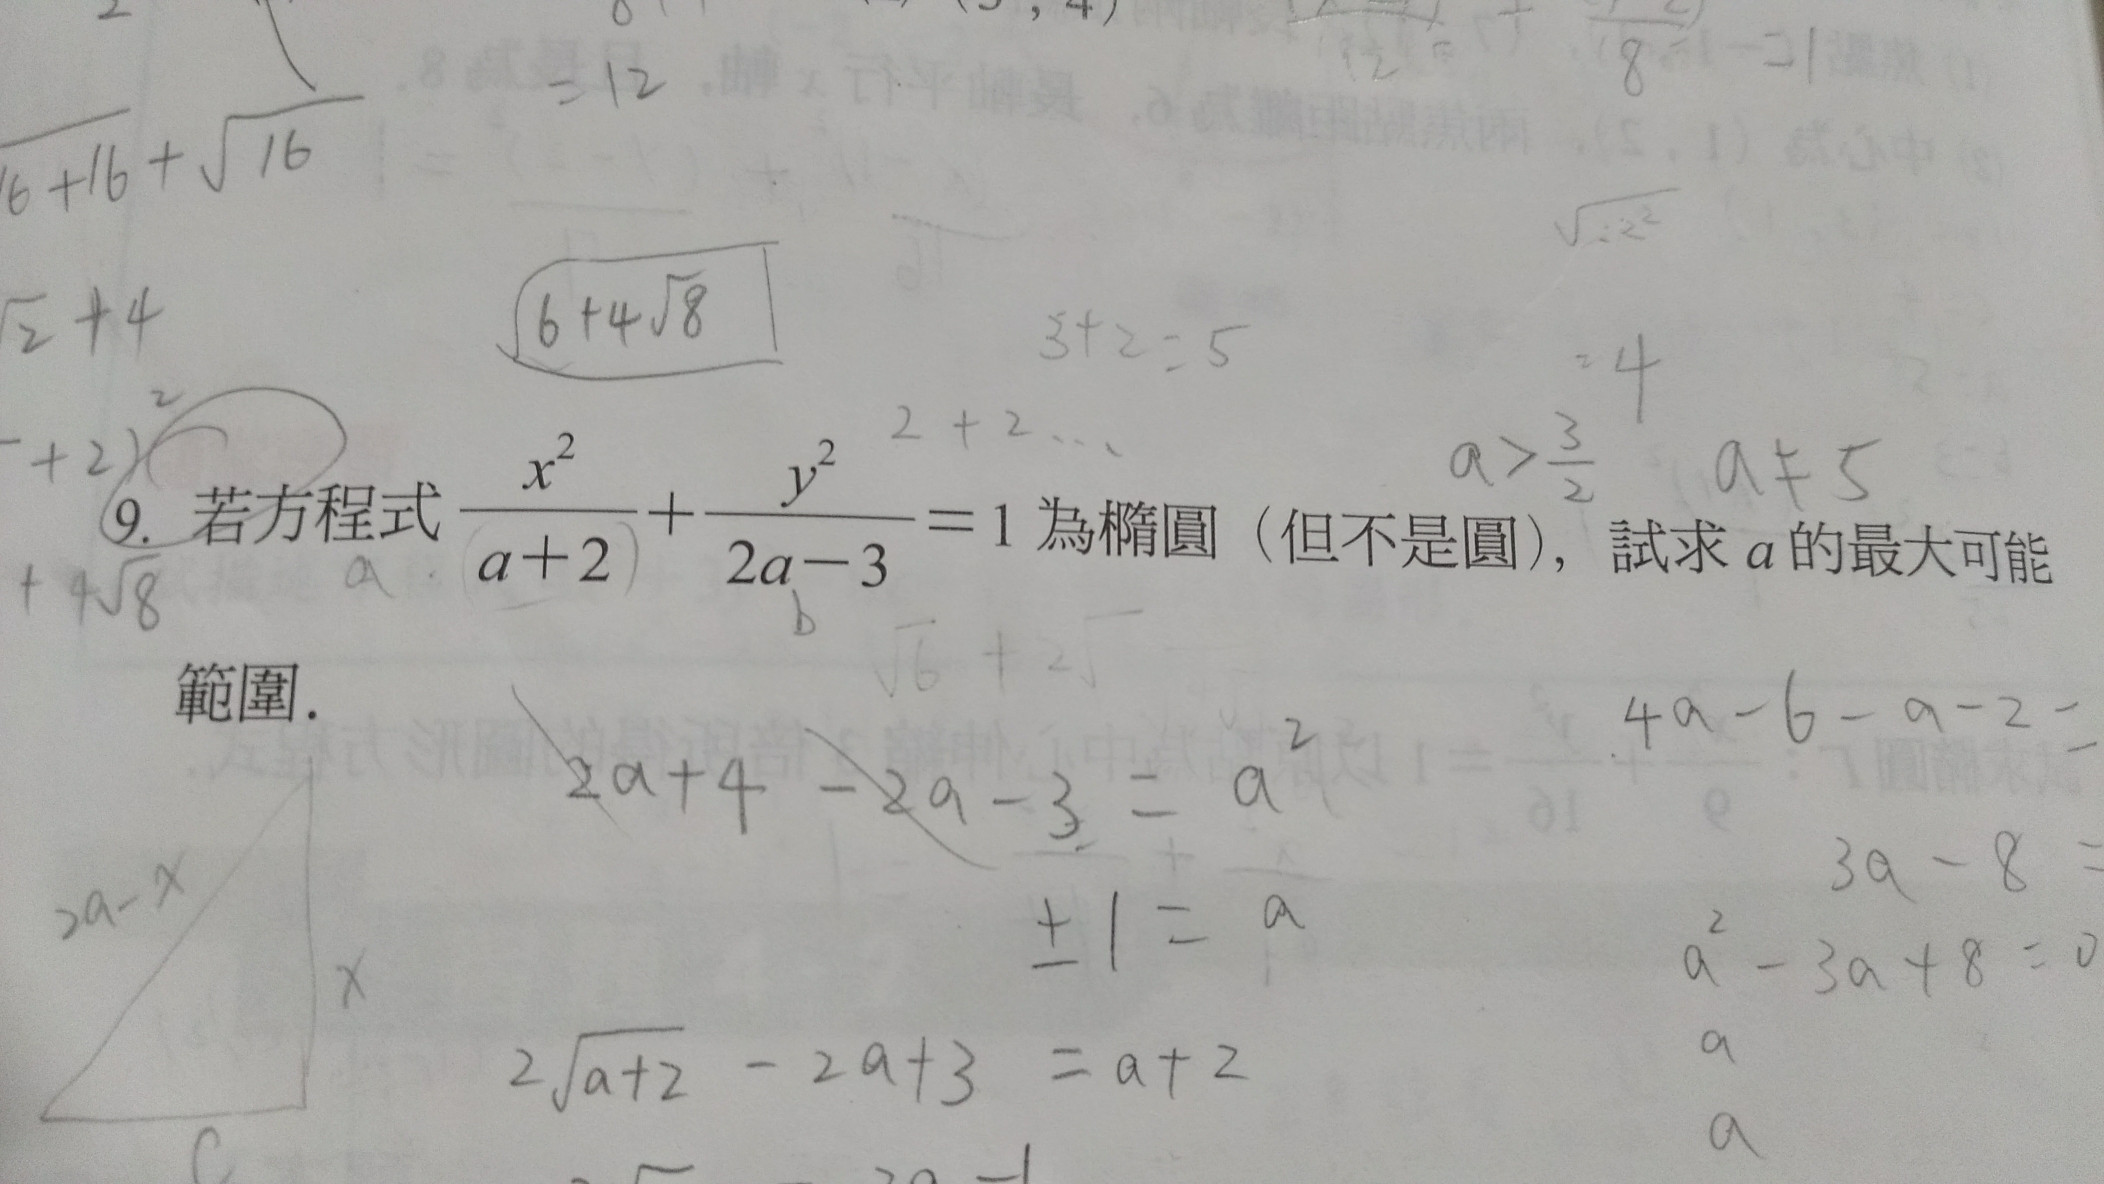 = 12
16 + √16
√2 + 4
6 + 4√8
3 + 2 = 5
= 4
+ 2)²
2 + 2 …
a > 3/2  a ≠ 5
9. 若方程式 x²/(a+2) + y²/(2a−3) = 1 為橢圓（但不是圓），試求 a 的最大可能
+ 4√8
a
b
√6 + 2√
範圍．
4a − 6 − a − 2 =
2a + 4 − 2a − 3 = a²
3a − 8 =
2a − x
± 1 = a
x
a² − 3a + 8 = 0
2√(a+2) − 2a + 3 = a + 2
a
a
c